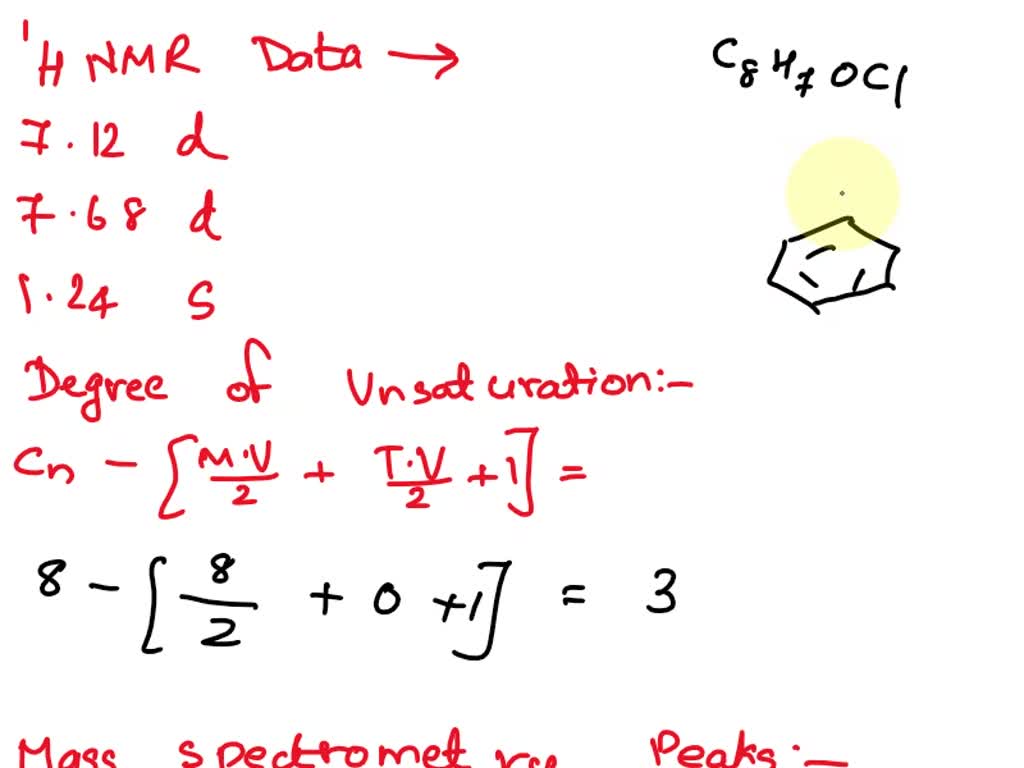 ¹H NMR Data →
C₈H₇OCl
7.12 d
7.68 d
1.24 s
Degree of Unsaturation:-
Cn - [M.V/2 + T.V/2 + 1] =
8 - [8/2 + 0 + 1] = 3
Mass spectrometry Peaks:-